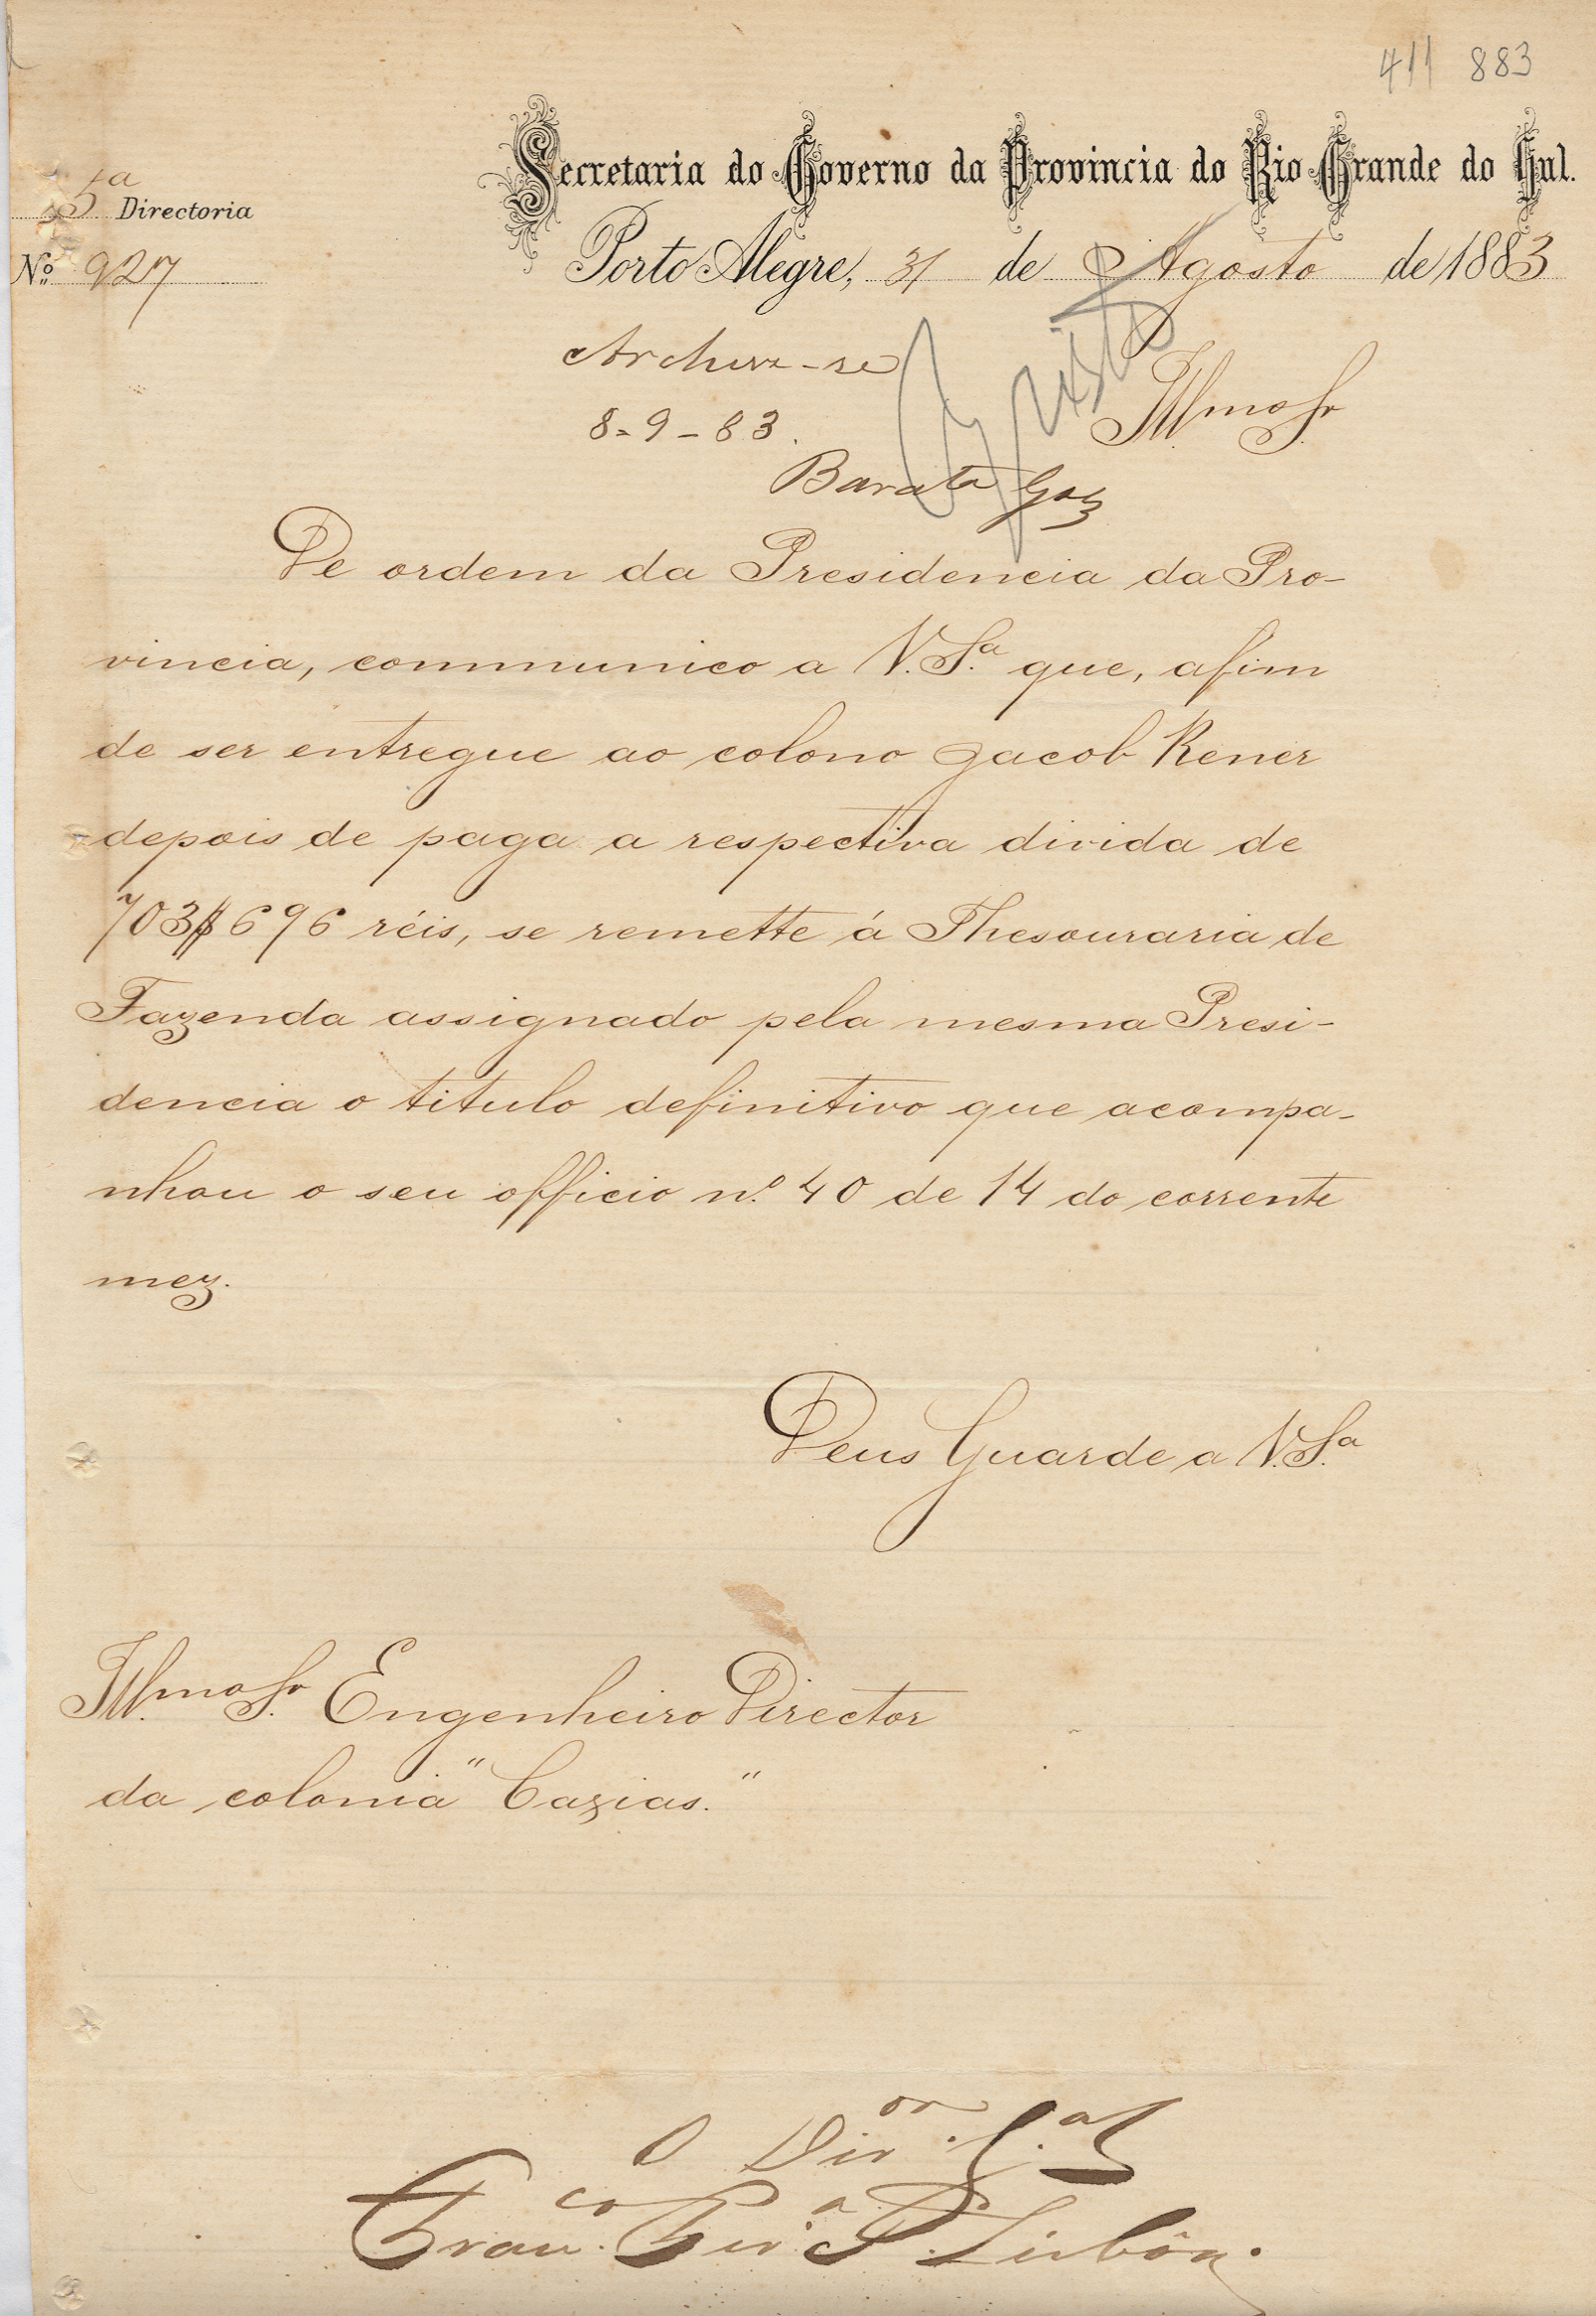 411 883
Secretaria do Governo da Provincia do Rio Grande do Sul.
5ª Directoria
Nº 927
Porto Alegre, 31 de Agosto de 1883
Archive-se
8-9-83.
Visto
Illmo Sr.
De ordem da Presidencia da Pro-
vincia, communico a V. Sª. que, afim
de ser entregue ao colono Jacob Rener
depois de paga a respectiva divida de
703$696 réis, se remette á Thesouraria de
Fazenda assignado pela mesma Presi-
dencia o titulo definitivo que acompa-
nhou o seu officio nº. 40 de 14 do corrente
mez.
Deus Guarde a V. Sª.
Illmo Sr. Engenheiro Director
da colonia "Caxias."
O Dir.or G.al
Fran.co Per.a Lisbôa.